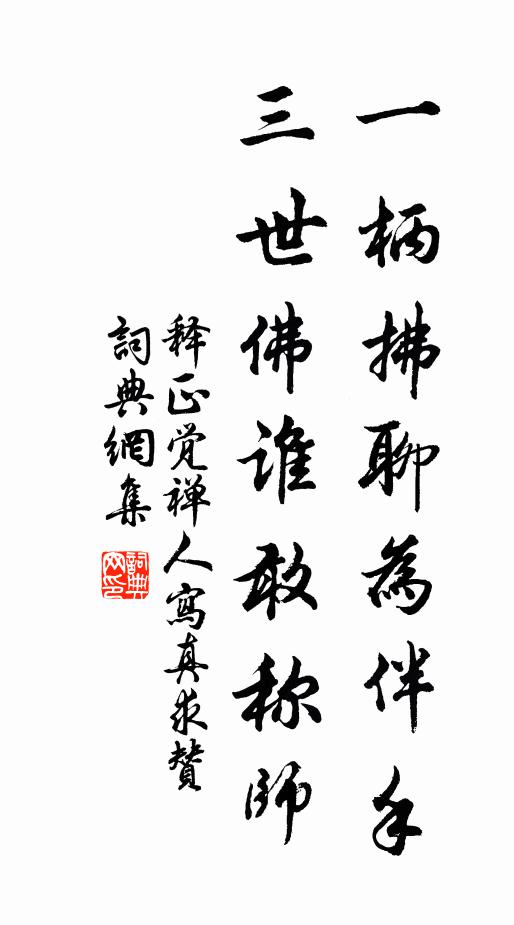 一柄拂聊為伴手
三世佛谁敢称師
释正觉禅人寫真求贊
詞典網集
詞典网印